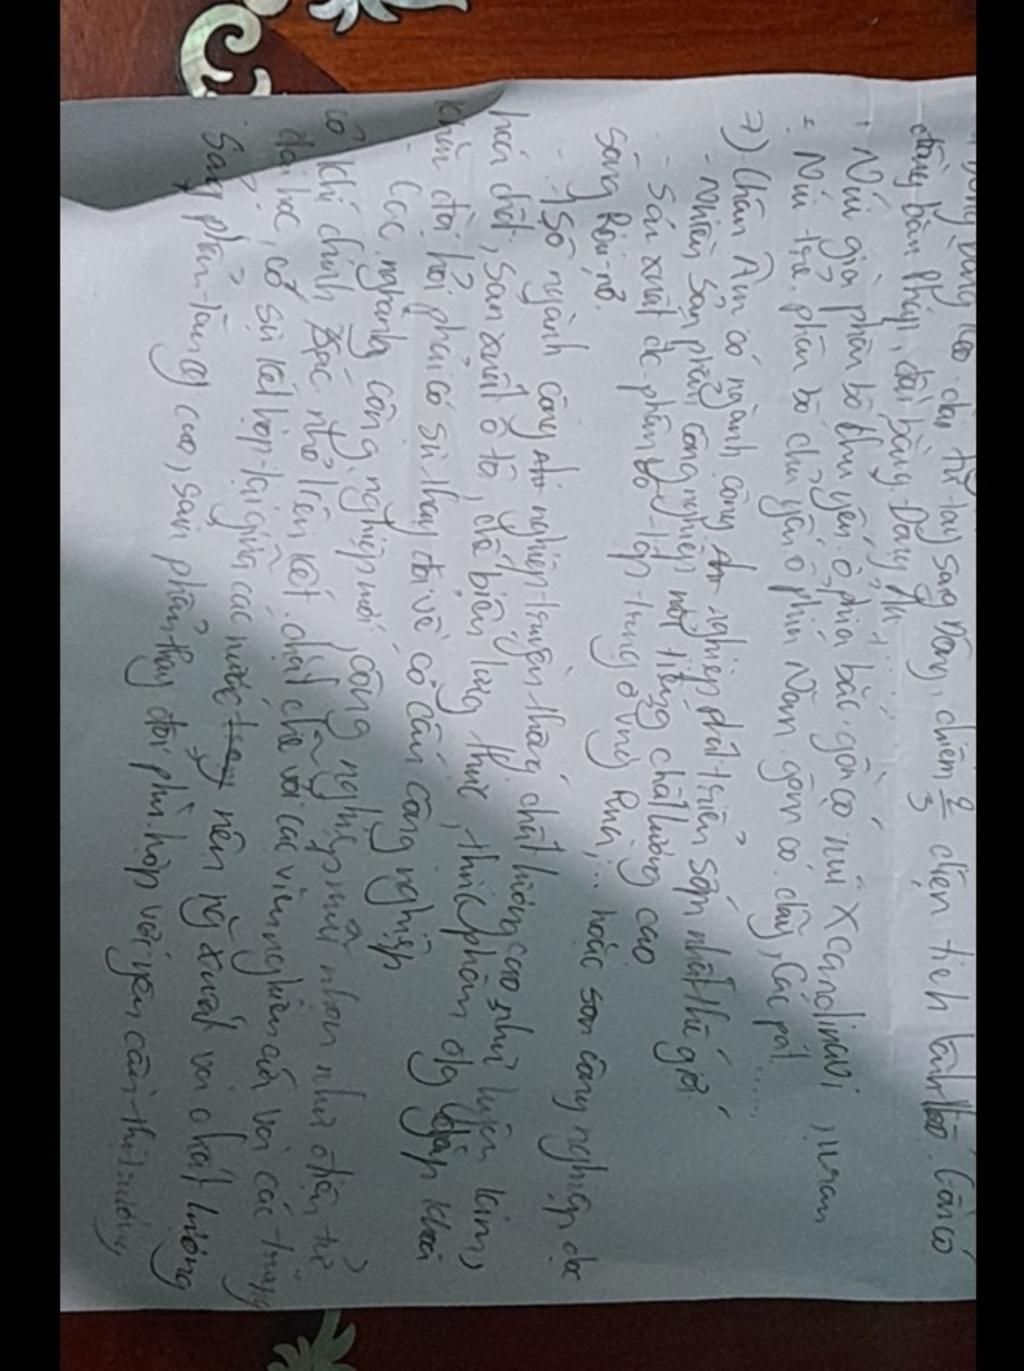 đồng bằng kéo dài từ tây sang đông, chiếm 2/3 diện tích lãnh thổ. Gồm có
đồng bằng Pháp, đồng bằng Đông Âu ...
+ Núi già phân bố chủ yếu ở phía bắc gồm có núi Xcandinavi, uran
+ Núi trẻ phân bố chủ yếu ở phía Nam gồm có dãy Các pát.....
7) Châu Âu có ngành công nghiệp phát triển sớm nhất thế giới
- Nhiều sản phẩm công nghiệp nổi tiếng chất lượng cao
- Sản xuất dc phân bố tập trung ở vùng Rua,... hoặc sơn công nghiệp dọc
sông Rai-nơ.
- 1 số ngành công nghiệp truyền thống chất lượng cao như luyện kim,
hoá chất, sản xuất ô tô, chế biến lương thực, thực phẩm đg gặp khó
khăn đòi hỏi phải có sự thay đổi về cơ cấu công nghiệp
- Các nghành công nghiệp mới, công nghiệp mũi nhọn như điện tử
cơ khí chính xác nhờ liên kết chặt chẽ với các viện nghiên cứu và các trường
đại học, có sự kết hợp lại giữa các nước nên ng xuất và chất lượng
Sản phẩm tăng cao, sản phẩm thay đổi phù hợp với yêu cầu thị trường